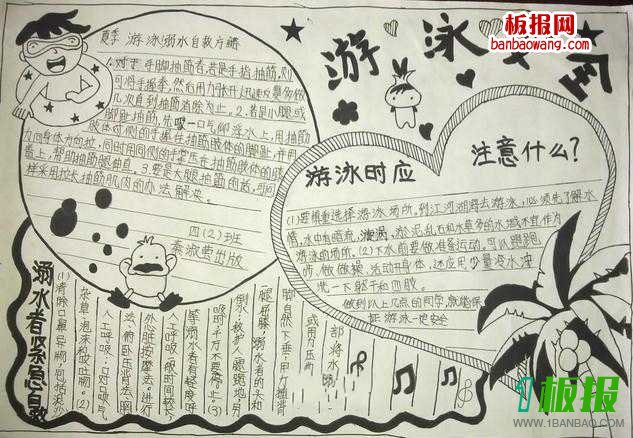 板报网
www.banbaowang.com
游泳安全
夏季 游泳溺水自救方法
1.对于手脚抽筋者,若是手指抽筋,则
可将手握拳,然后用力张开,迅速反复多做
几次直到抽筋消除为止。2.若是小腿或
脚趾抽筋,先吸一口气仰浮水上,用抽筋
肢体对侧的手握住抽筋肢体的脚趾,并用
力向身体方向拉,同时用同侧的手掌压在抽筋肢体的膝
盖上,帮助抽筋腿伸直。3.要是大腿抽筋的话,可同
样采用拉长抽筋肌肉的办法解决。
四(2)班
出版
游泳时应
注意什么?
(1)要慎重选择游泳场所。到江河湖海去游泳,必须先了解水
情,水中有暗流、漩涡、淤泥、乱石和水草多的水域不宜作为
游泳的场所。(2)下水前要做准备运动,可以跑跑
步,做做操,活动开身体,还应用少量冷水冲
洗一下躯干和四肢。
做到以上几点的同学,就能保
证游泳一定安全
溺水者紧急自救
(1)清除口鼻
杂草、泡沫和呕吐物。(2)
人工呼吸:口对口吹气
法、俯卧压背法
心脏按摩法:进行
人工呼吸
(3)
腿屈膝,溺水者的头和
脚自然下垂
部将水
1板报
WWW.1BANBAO.COM